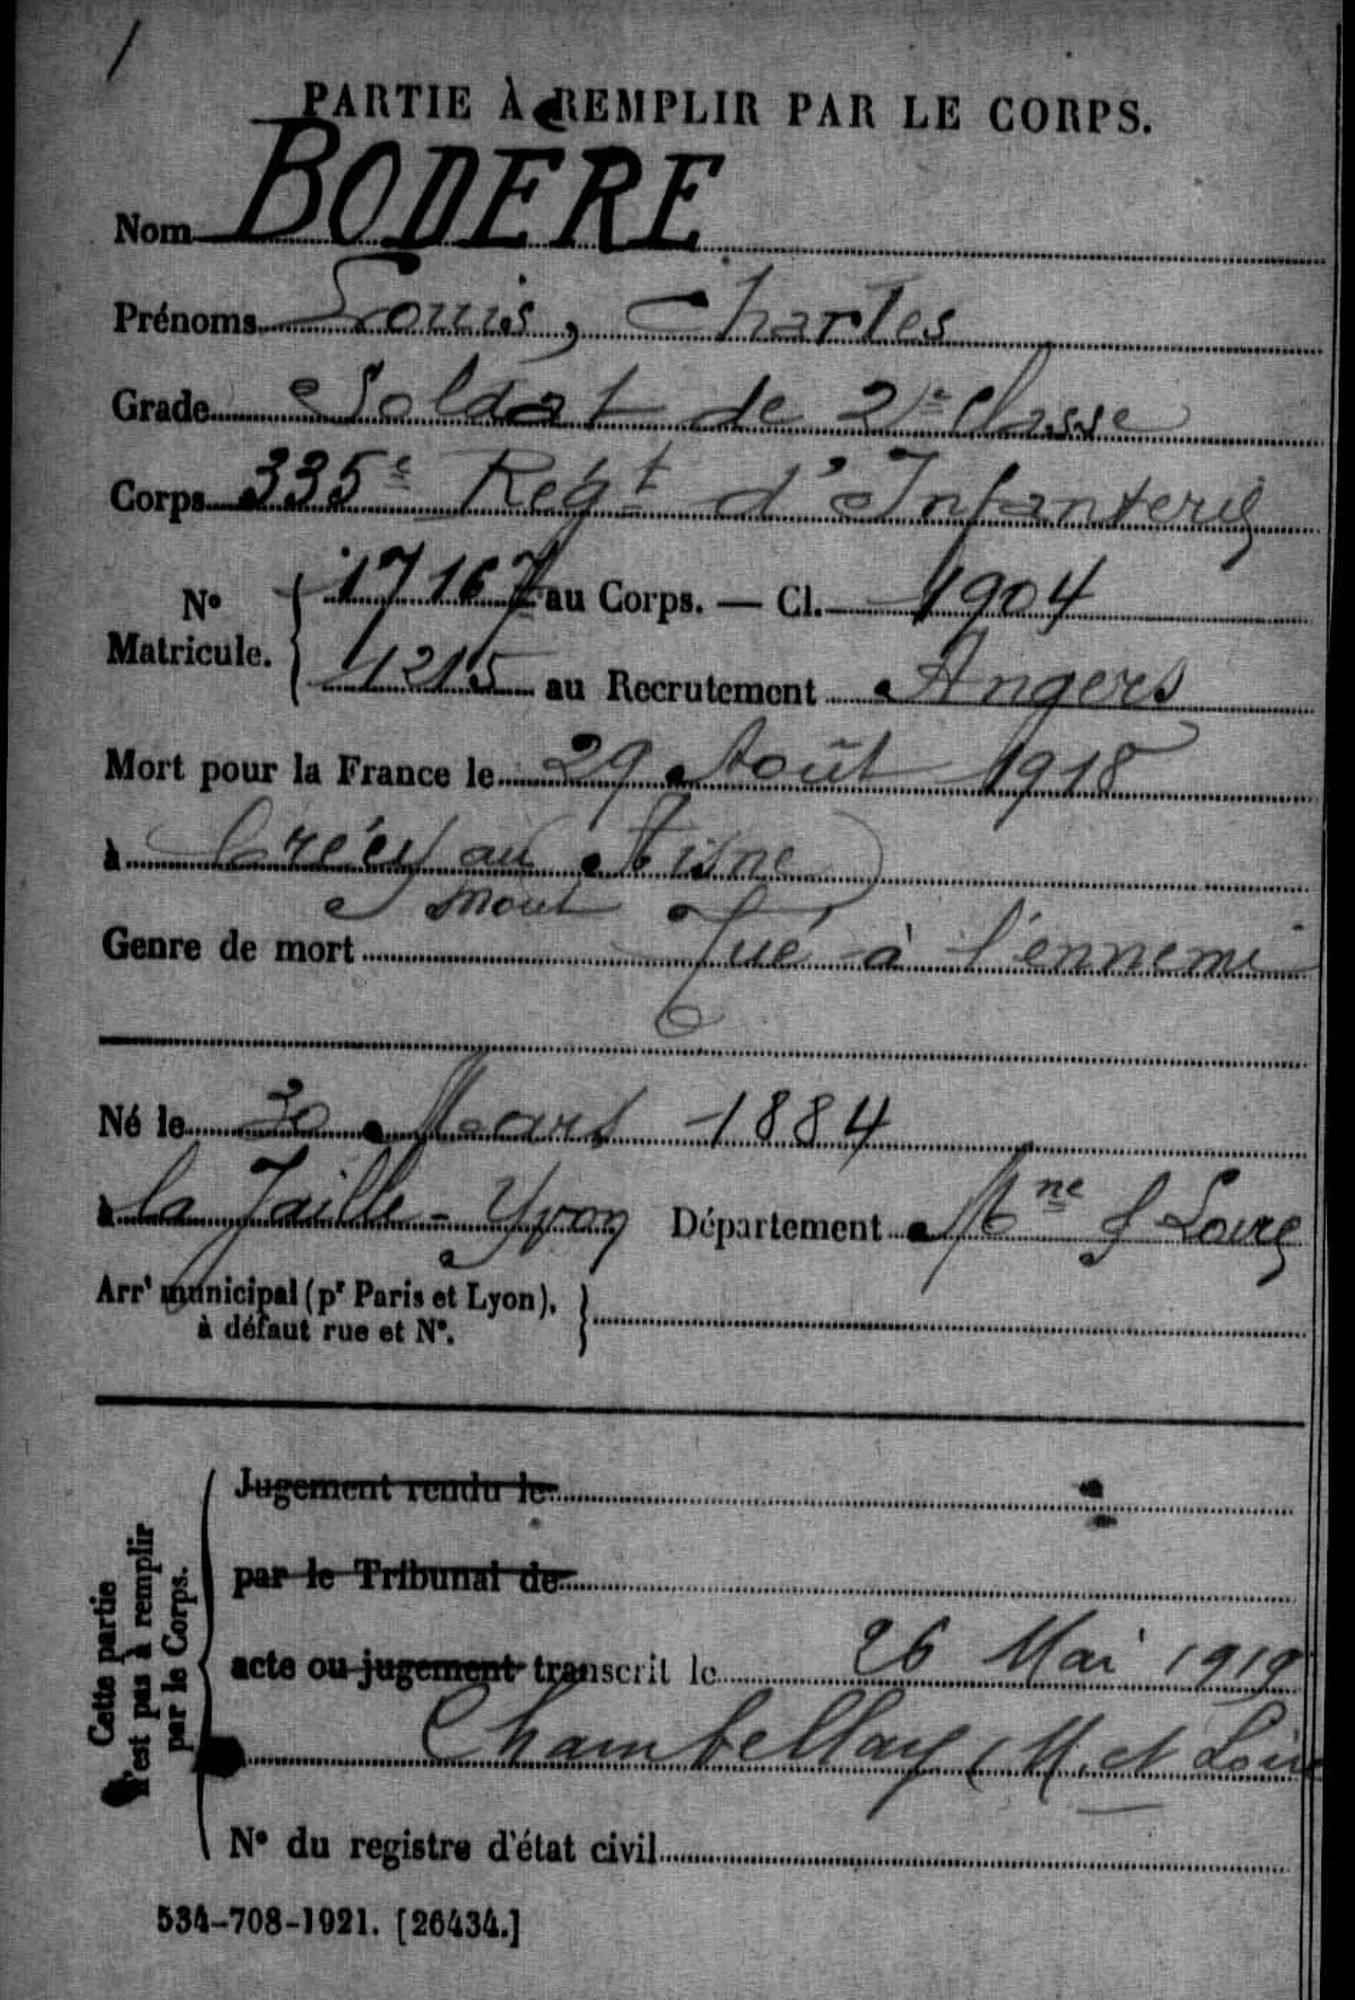 PARTIE À REMPLIR PAR LE CORPS.
Nom BODERE
Prénoms Louis, Charles
Grade Soldat de 2e classe
Corps 335e Régt d'Infanterie
No Matricule. 17167 au Corps. — Cl. 1904
1215 au Recrutement Angers
Mort pour la France le 29 Août 1918
à Crécy au Aisne
Mont
Genre de mort Tué à l'ennemi
Né le 30 Mars 1884
à la Jaille-Yvon Département Mne & Loire
Arrt municipal (pr Paris et Lyon),
à défaut rue et No.
Cette partie
n'est pas à remplir
par le Corps.
Jugement rendu le
par le Tribunal de
acte ou jugement transcrit le 26 Mai 1919
Chambellay (M. et Loire
No du registre d'état civil
534-708-1921. [26434.]